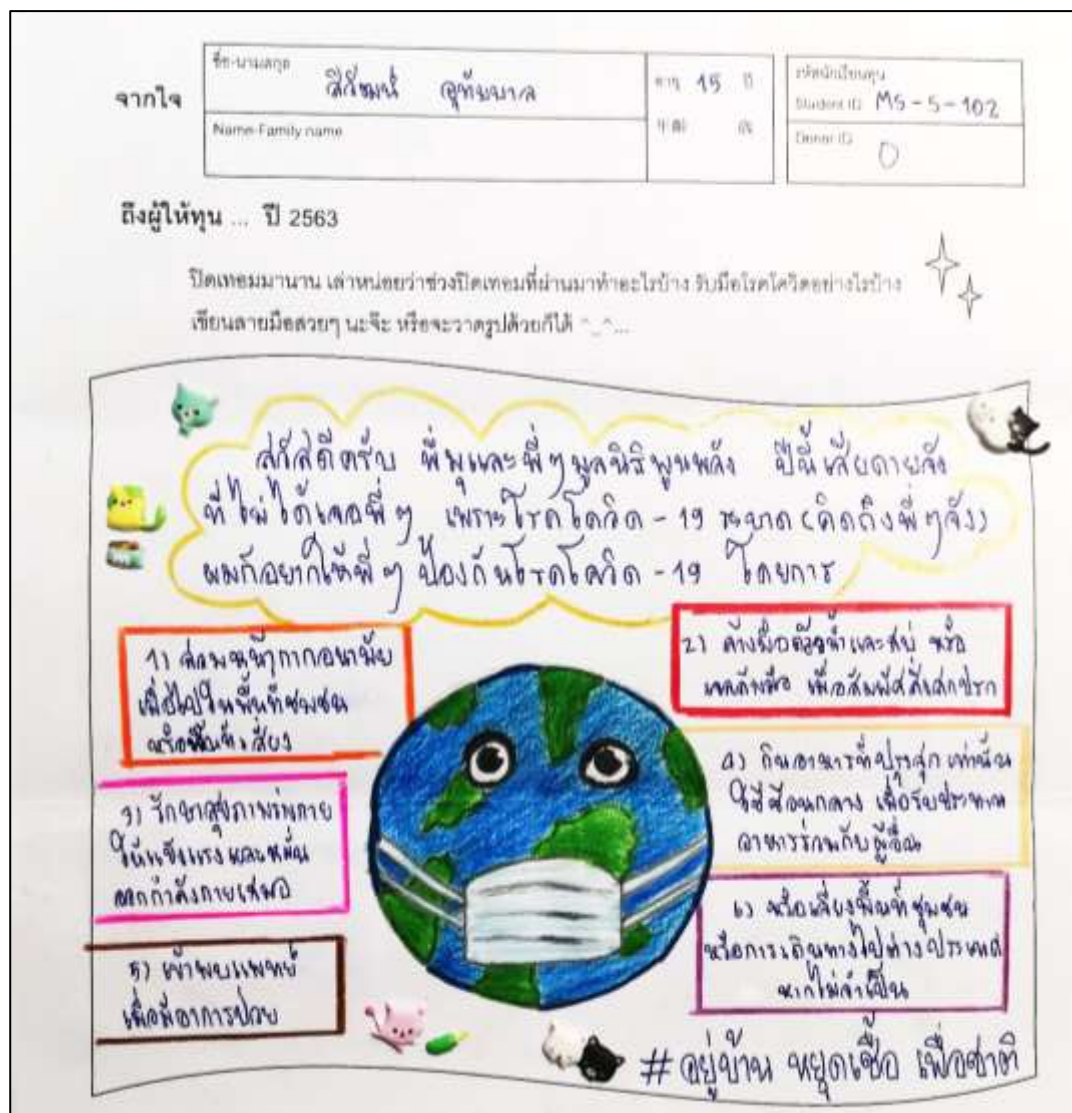 จากใจ
ชื่อ-นามสกุล
สิวัฒน์ อุทัมบาล
อายุ 15 ปี
รหัสนักเรียนทุน
Student ID MS-5-102
Name-Family name
Donor ID 0
ถึงผู้ให้ทุน ... ปี 2563
ปิดเทอมมานาน เล่าหน่อยว่าช่วงปิดเทอมที่ผ่านมาทำอะไรบ้าง รับมือโรคโควิดอย่างไรบ้าง
เขียนลายมือสวยๆ นะจ๊ะ หรือจะวาดรูปด้วยก็ได้ ^_^...
สวัสดีครับ พี่มุและพี่ๆมูลนิธิพูนพลัง ปีนี้เสียดายจัง
ที่ไม่ได้เจอพี่ๆ เพราะโรคโควิด-19 ระบาด (คิดถึงพี่ๆจัง)
ผมก็อยากให้พี่ๆ ป้องกันโรคโควิด-19 โดยการ
1) สวมหน้ากากอนามัย
เมื่อไปในพื้นที่ชุมชน
หรือพื้นที่เสี่ยง
2) ล้างมือด้วยน้ำและสบู่ หรือ
เจลล้างมือ เมื่อสัมผัสสิ่งสกปรก
3) รักษาสุขภาพร่างกาย
ให้แข็งแรงและหมั่น
ออกกำลังกายเสมอ
4) กินอาหารที่ปรุงสุกเท่านั้น
ใช้ช้อนกลาง เมื่อรับประทาน
อาหารร่วมกับผู้อื่น
5) เข้าพบแพทย์
เมื่อมีอาการป่วย
6) หลีกเลี่ยงพื้นที่ชุมชน
หรือการเดินทางไปต่างประเทศ
หากไม่จำเป็น
#อยู่บ้าน หยุดเชื้อ เพื่อชาติ